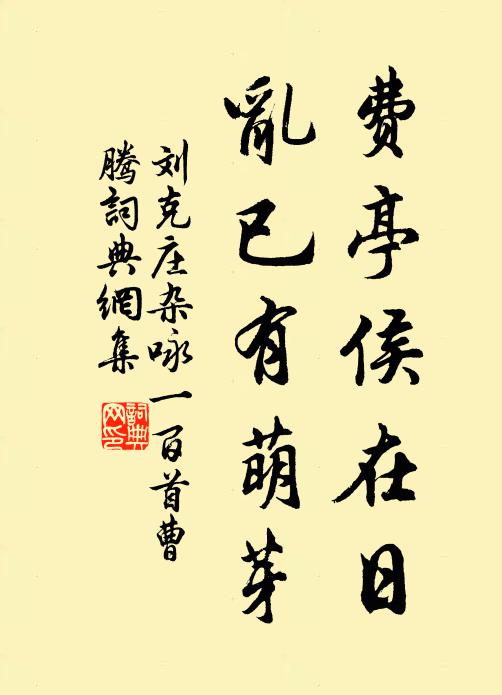 费亭侯在日
乱已有萌芽
刘克庄杂咏一百首曹
腾詞典網集
詞典
网印